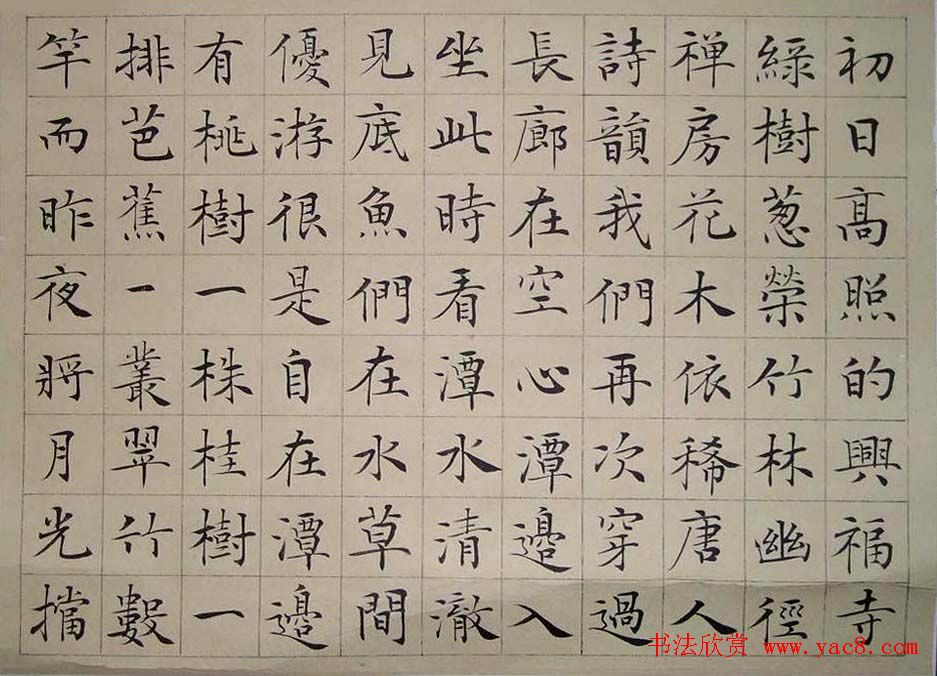 初日高照的興福寺
綠樹葱榮竹林幽徑
禅房花木依稀唐人
詩韻我們再次穿過
長廊在空心潭邊入
坐此時看潭水清澈
見底魚們在水草間
優游很是自在潭邊
有桃樹一株桂樹一
排芭蕉一叢翠竹數
竿而昨夜將月光擋
书法欣赏 www.yac8.com